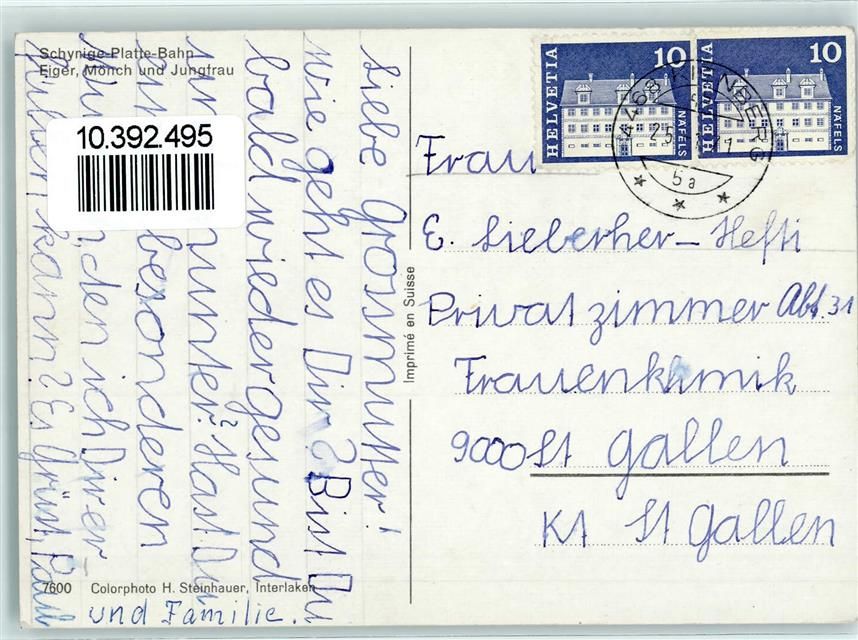 Schynige-Platte-Bahn
Eiger, Mönch und Jungfrau
10.392.495
Liebe Grosmutter!
wie geht es Dir? Bist Du
bald wiedergesund
unter? Hast Du
besonderen
den ich Dir er
füllen kann? Es Grüst, Paul
und Familie.
7600 Colorphoto H. Steinhauer, Interlaken
Imprimé en Suisse
HELVETIA 10 NÄFELS
HELVETIA 10 NÄFELS
4468 KIENBERG
5a
Frau
E. Lieberher-Hefti
Privatzimmer Abt. 31
Frauenklinik
9000 St Gallen
Kt St Gallen